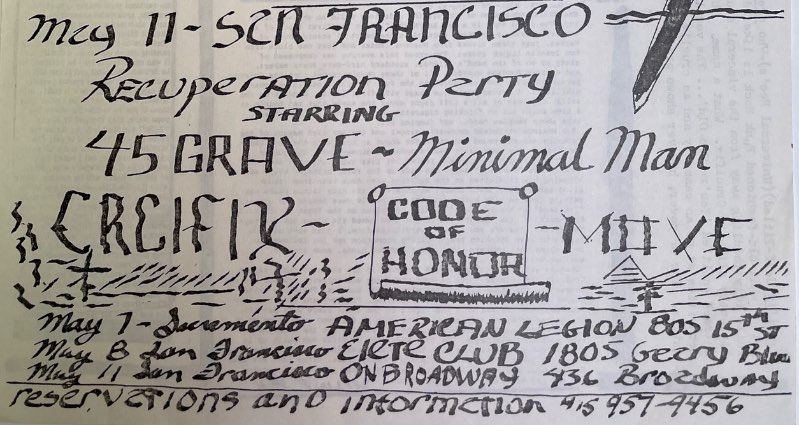 May 11 - SAN FRANCISCO
Recuperation Party
STARRING
45 GRAVE ~ Minimal Man
CRCIFIX ~ CODE OF HONOR - MOVE
May 7 - Sacremento AMERICAN LEGION 805 15TH ST
May 8 San Francisco ELITE CLUB 1805 Geary Blvd
May 11 San Francisco ON BROADWAY 436 Broadway
reservations and information 415 957-9456